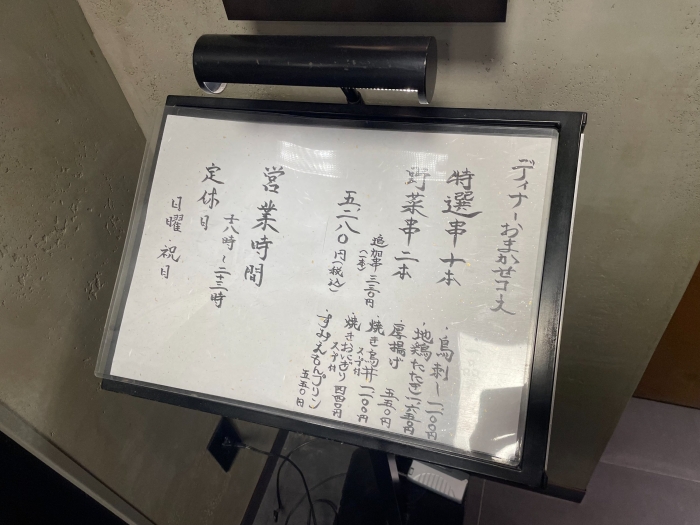 ディナーおまかせコース
特選串 十本
野菜串 二本
追加串 三三〇円
(一本)
五、二八〇円(税込)
・鳥刺し 一、一〇〇円
・地鶏たたき 一、六五〇円
・厚揚げ 五五〇円
・焼き鳥丼 一、一〇〇円
スープ付
・焼きおにぎり 四四〇円
スープ付
・すみえもんプリン 五五〇円
営業時間
十八時〜二十三時
定休日
日曜・祝日